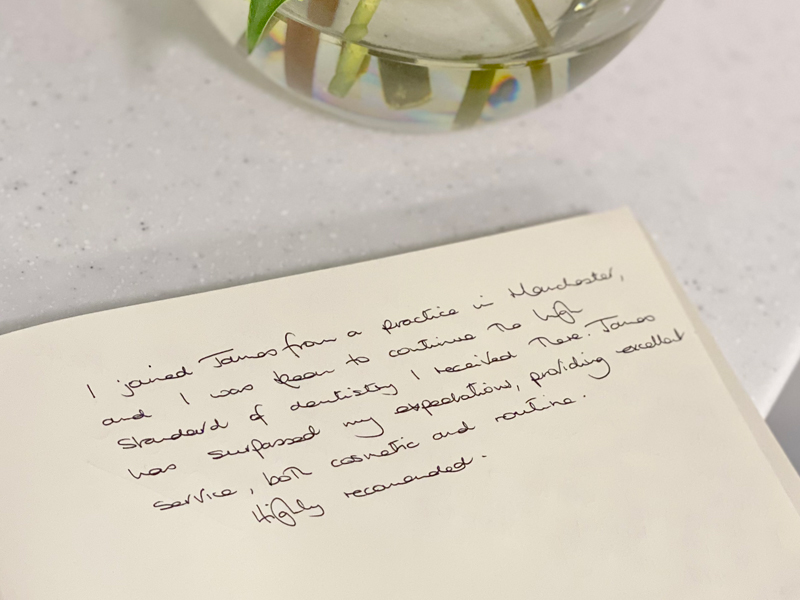 I joined James from a practice in Manchester,
and I was keen to continue the high
standard of dentistry I received there. James
has surpassed my expectations, providing excellent
service, both cosmetic and routine.
Highly recommended.